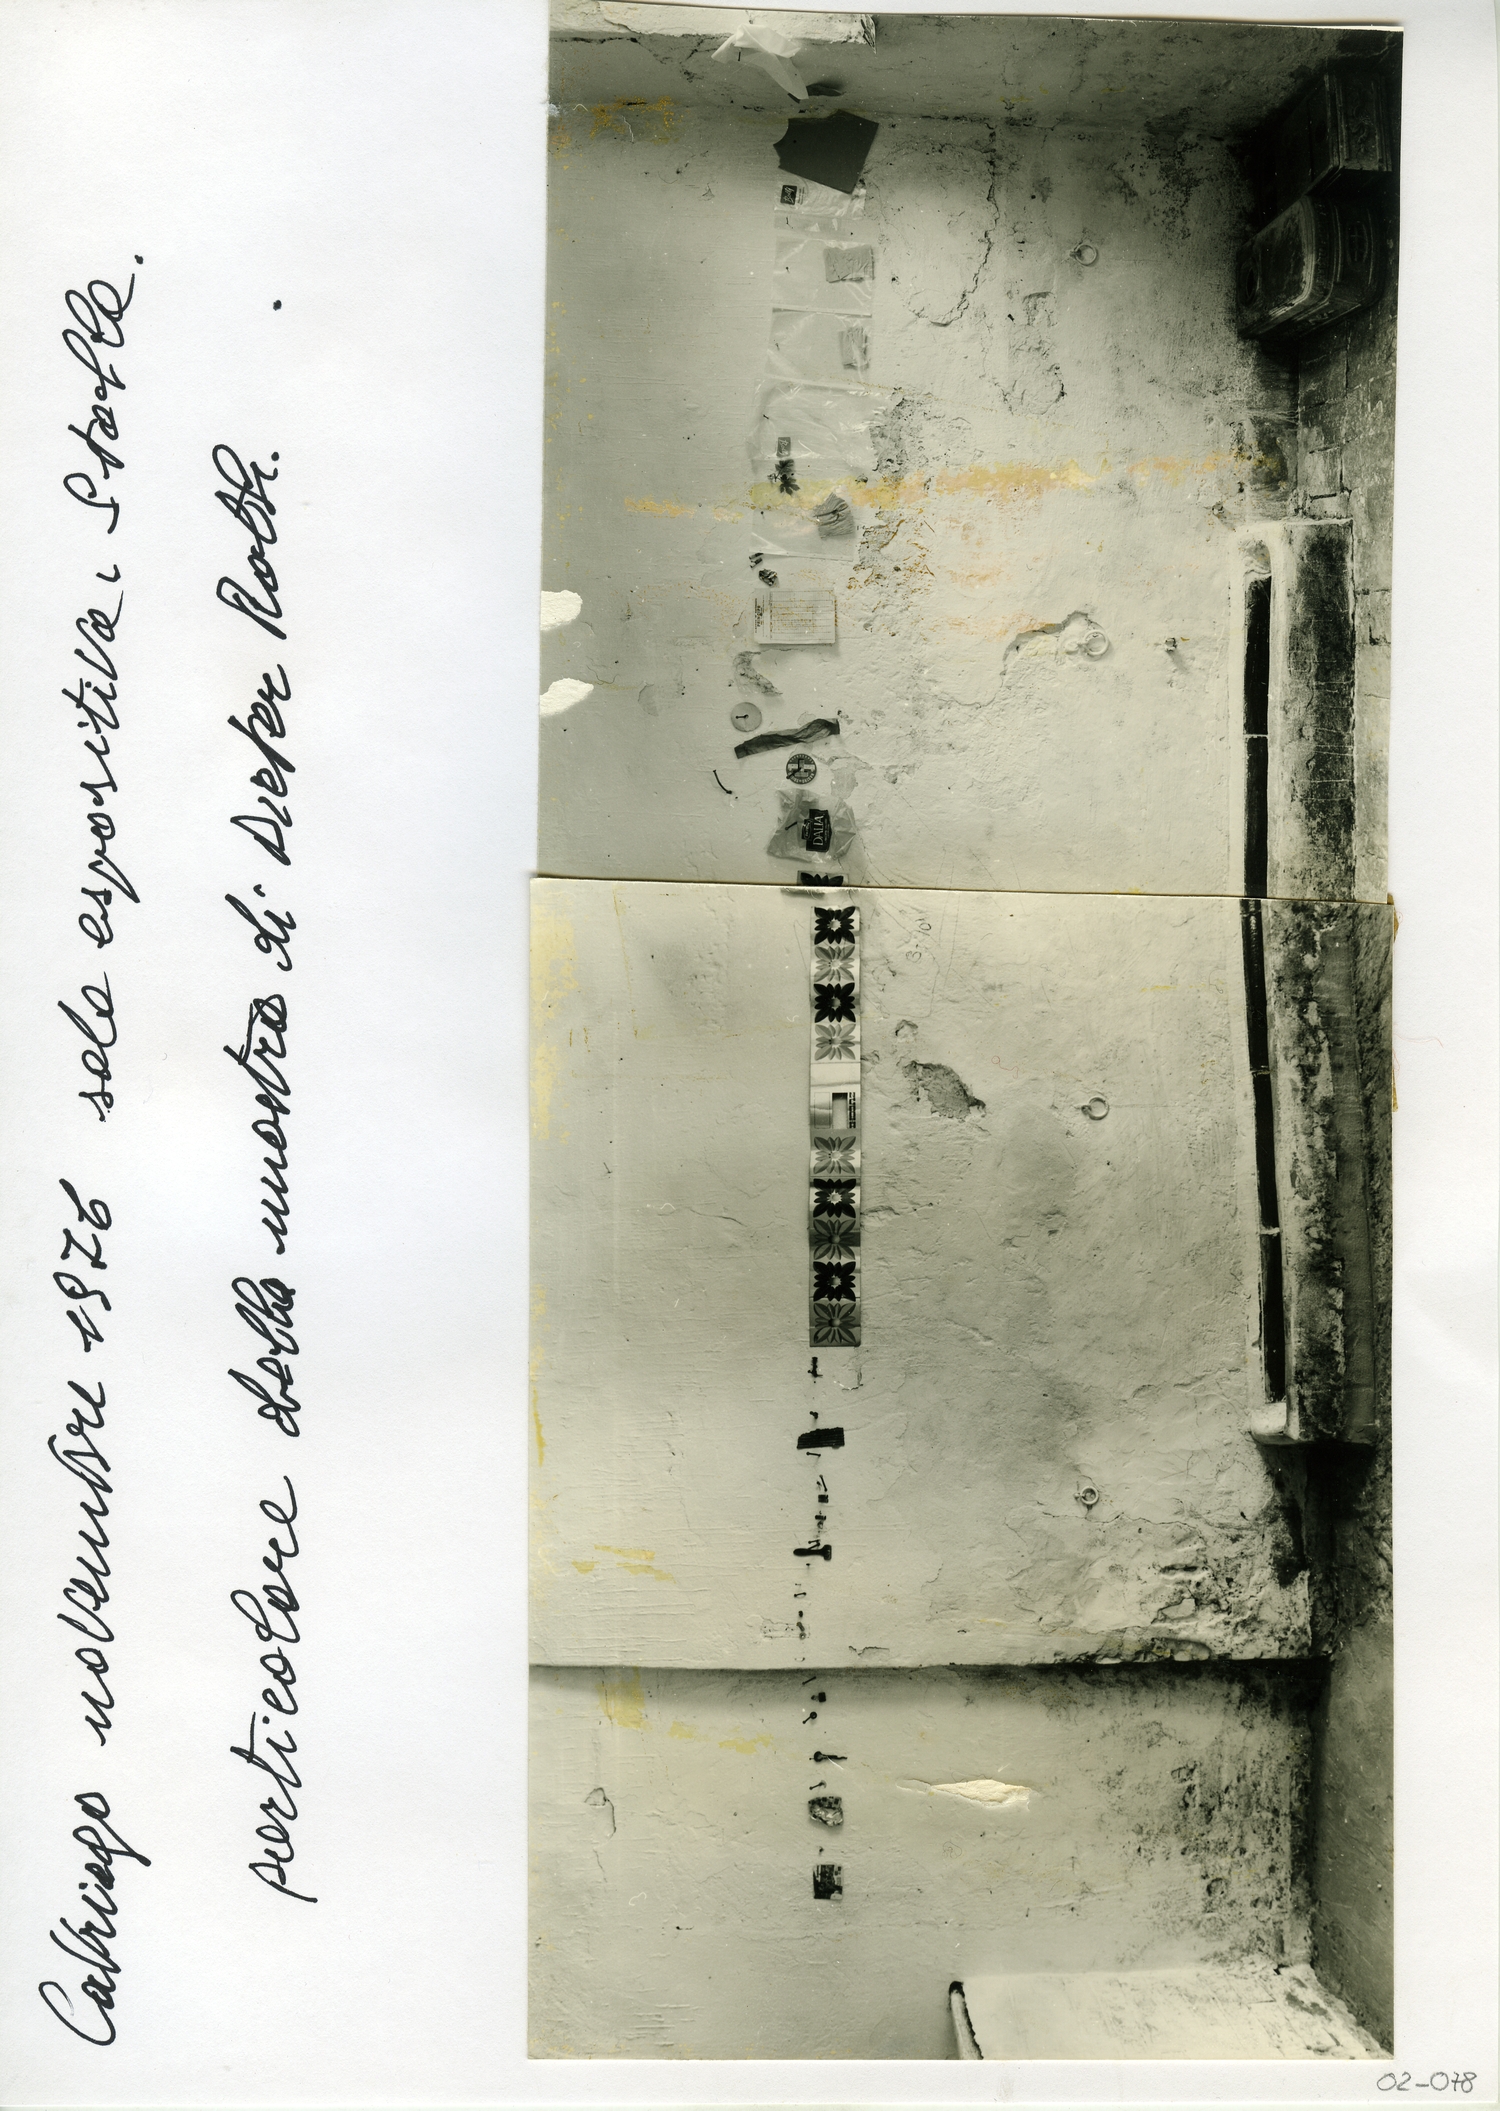 Cavriago novembre 1976 sala espositiva, Stalle.
particolare della mostra di Dieter Roth.
DALIA
B-10
02-078